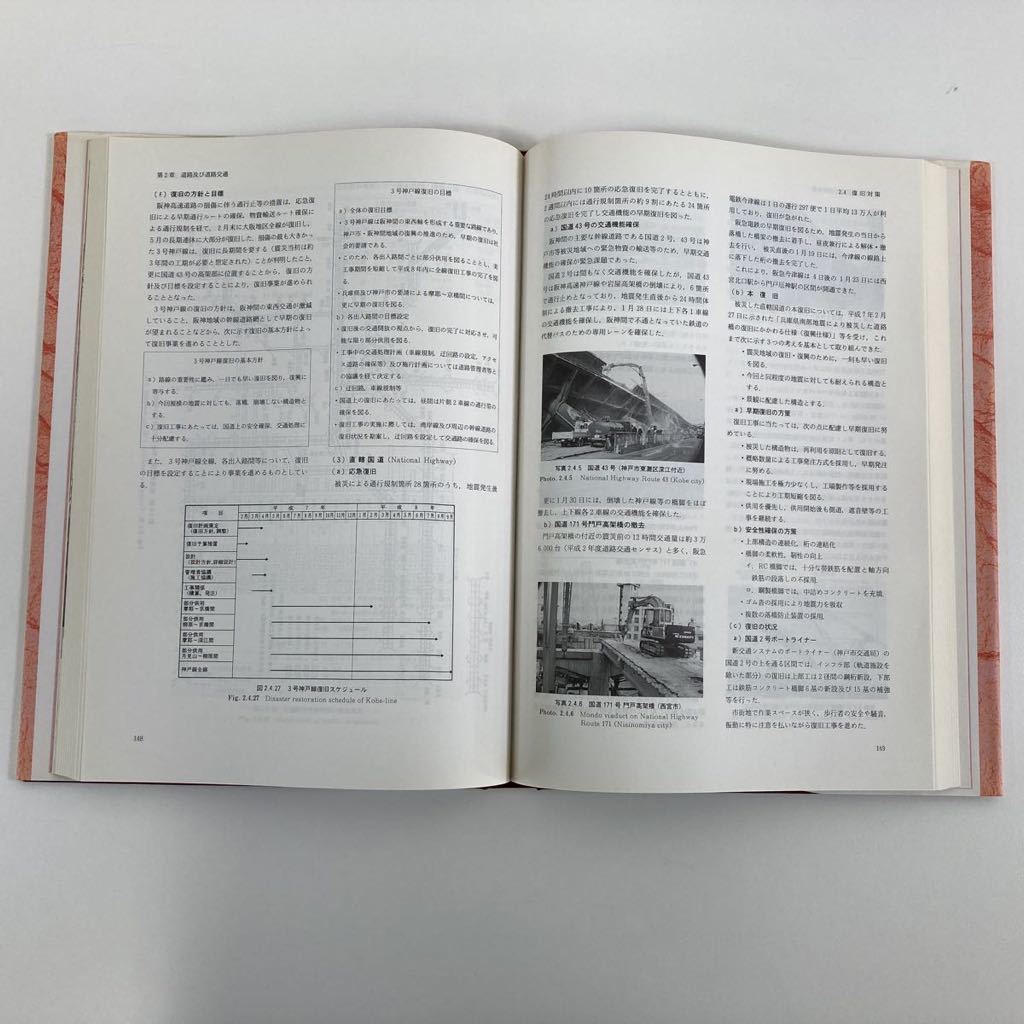 第2章 道路及び道路交通
(f) 復旧の方針と目標
阪神高速道路の損傷に伴う通行止等の措置は、応急復
旧による早期通行ルートの確保、物資輸送ルート確保に
よる通行規制を経て、2月末に大阪地区全線が復旧し、
5月の長期連休に大部分が復旧した。損傷の最も大きかっ
た3号神戸線は、復旧に長期間を要する(震災当初は約
3年間の工期が必要と想定された)ことが判明したこと、
更に国道43号の高架部に位置することから、復旧の方
針及び目標を設定することにより、復旧事業が進められ
ることとなった。
3号神戸線の復旧の方針は、阪神間の東西交通が激減
していること、阪神地域の幹線道路網として早期の復旧
が望まれることなどから、次に示す復旧の基本方針によっ
て復旧事業を進めることとした。
3号神戸線復旧の基本方針
a) 路線の重要性に鑑み、一日でも早い復旧を図り、復興に
寄与する.
b) 今回規模の地震に対しても、落橋、崩壊しない構造物と
する.
c) 復旧工事にあたっては、国道上の安全確保、交通処理に
十分配慮する.
また、3号神戸線全線、各出入路間等について、復旧
の目標を設定することにより事業を進めるものとしてい
る.
3号神戸線復旧の目標
a) 全体の復旧目標
・3号神戸線は阪神間の東西軸を形成する重要な路線であり、
神戸市・阪神間地域の復興の推進のため、早期の復旧は社
会的要請である.
・このため、各出入路間ごとに部分供用を図ることとし、実
工事期間を短縮して平成8年内に全線復旧工事の完了を図
る.
・兵庫県及び神戸市の要請による摩耶～京橋間については、
更に早期の復旧を図る.
b) 各出入路間の目標設定
・復旧後の交通開放の視点から、復旧の完了に対応させ、可
能な限り部分供用を図る.
・工事中の交通処理計画(車線規制、迂回路の設定、アクセ
ス路の確保等)及び施行計画については道路管理者等と
の協議を経て決定する.
c) 迂回路、車線規制等
・国道上の復旧にあたっては、昼間は片側2車線の通行帯の
確保を図る.
・復旧工事の実施に際しては、湾岸線及び周辺の幹線道路の
復旧状況を勘案し、迂回路を設定して交通路の確保を図る.
(3) 直轄国道 (National Highway)
(a) 応急復旧
被災による通行規制箇所28箇所のうち、地震発生後
項 目
平 成 7 年
平 成 8 年
2月 3月 4月 5月 6月 7月 8月 9月 10月 11月 12月 1月 2月 3月 4月 5月 6月 7月 8月 9月
復旧計画策定
(復旧方針,調整)
復旧予算措置
設計
(設計方針,詳細設計)
管理者協議
(施工協議)
工事関係
(積算、発注)
部分供用
摩耶～京橋間
部分供用
柳原～京橋間
部分供用
摩耶～深江間
部分供用
月見山～柳原間
神戸線全線
図2.4.27 3号神戸線復旧スケジュール
Fig. 2.4.27 Disaster restoration schedule of Kobe-line
148
2.4 復旧対策
24時間以内に10箇所の応急復旧を完了するとともに、
2週間以内には通行規制箇所の約9割にあたる24箇所
の応急復旧を完了し交通機能の早期復旧を図った.
a) 国道43号の交通機能確保
阪神間の主要な幹線道路である国道2号、43号は神
戸市等被災地域への緊急物資の輸送等のため、早期交通
機能の確保が緊急課題であった.
国道2号は間もなく交通機能を確保したが、国道43
号は阪神高速神戸線や岩屋高架橋の倒壊により、6箇所
で通行止めとなっており、地震発生直後から24時体
制による撤去工事により、1月28日には上下各1車線
の交通機能を確保し、阪神間で不通となっていた鉄道の
代替バスのための専用レーンを確保した.
写真2.4.5 国道43号(神戸市東灘区深江付近)
Photo. 2.4.5 National Highway Route 43 (Kobe city)
更に1月30日には、倒壊した神戸線等の橋脚をほぼ
撤去し、上下線各2車線の交通機能を確保した.
b) 国道171号門戸高架橋の撤去
門戸高架橋の付近の震災前の12時間交通量は約3万
6,000台(平成2年度道路交通センサス)と多く、阪急
写真2.4.6 国道171号 門戸高架橋(西宮市)
Photo. 2.4.6 Mondo viaduct on National Highway
Route 171 (Nisinomiya city)
電鉄今津線は1日の運行297便で1日平均13万人が利
用しており、復旧が急がれた.
阪急電鉄の早期復旧を図るため、地震発生の当日から
落橋した橋梁の撤去に着手し、昼夜兼行による解体・撤
去を行い、被災直後の1月19日には、今津線の線路上
に落下した桁の撤去を完了した.
これにより、阪急今津線は4日後の1月23日には西
宮北口駅から門戸厄神駅の区間が開通できた.
(b) 本 復 旧
被災した直轄国道の本復旧については、平成7年2月
27日に示された「兵庫県南部地震により被災した道路
橋の復旧にかかわる仕様(復興仕様)」等を受け、これ
まで次に示す3つの考えを基本として取り組んできた.
・震災地域の復旧・復興のために、一刻も早い復旧
をする.
・今回と同程度の地震に対しても耐えられる構造と
する.
・景観に配慮した構造とする.
a) 早期復旧の方策
復旧工事に当たっては、次の点に配慮し早期復旧に努
めている.
・被災した構造物は、再利用を原則として復旧する.
・概略数量による工事発注方式を採用し、早期発注
に努める.
・現場施工を極力少なくし、工場製作等を採用する
ことにより工期短縮を図る.
・供用を優先し、供用開始後も側道、遮音壁等の工
事を継続する.
b) 安全性確保の方策
・上部構造の連続化、桁の連結化
・橋脚の柔軟性、靭性の向上
イ、RC橋脚では、十分な帯鉄筋を配置と軸方向
鉄筋の段落しの不採用.
ロ、鋼製橋脚では、中詰めコンクリートを充填.
・ゴム沓の採用により地震力を吸収
・複数の落橋防止装置の採用.
(c) 復旧の状況
a) 国道2号ポートライナー
新交通システムのポートライナー(神戸市交通局)の
国道2号の上を通る区間では、インフラ部(軌道施設を
除いた部分)の復旧は上部工は2径間の鋼桁新設、下部
工は鉄筋コンクリート橋脚6基の新設及び15基の補強
等を行った.
市街地で作業スペースが狭く、歩行者の安全や騒音、
振動に特に注意を払いながら復旧工事を進めた.
149